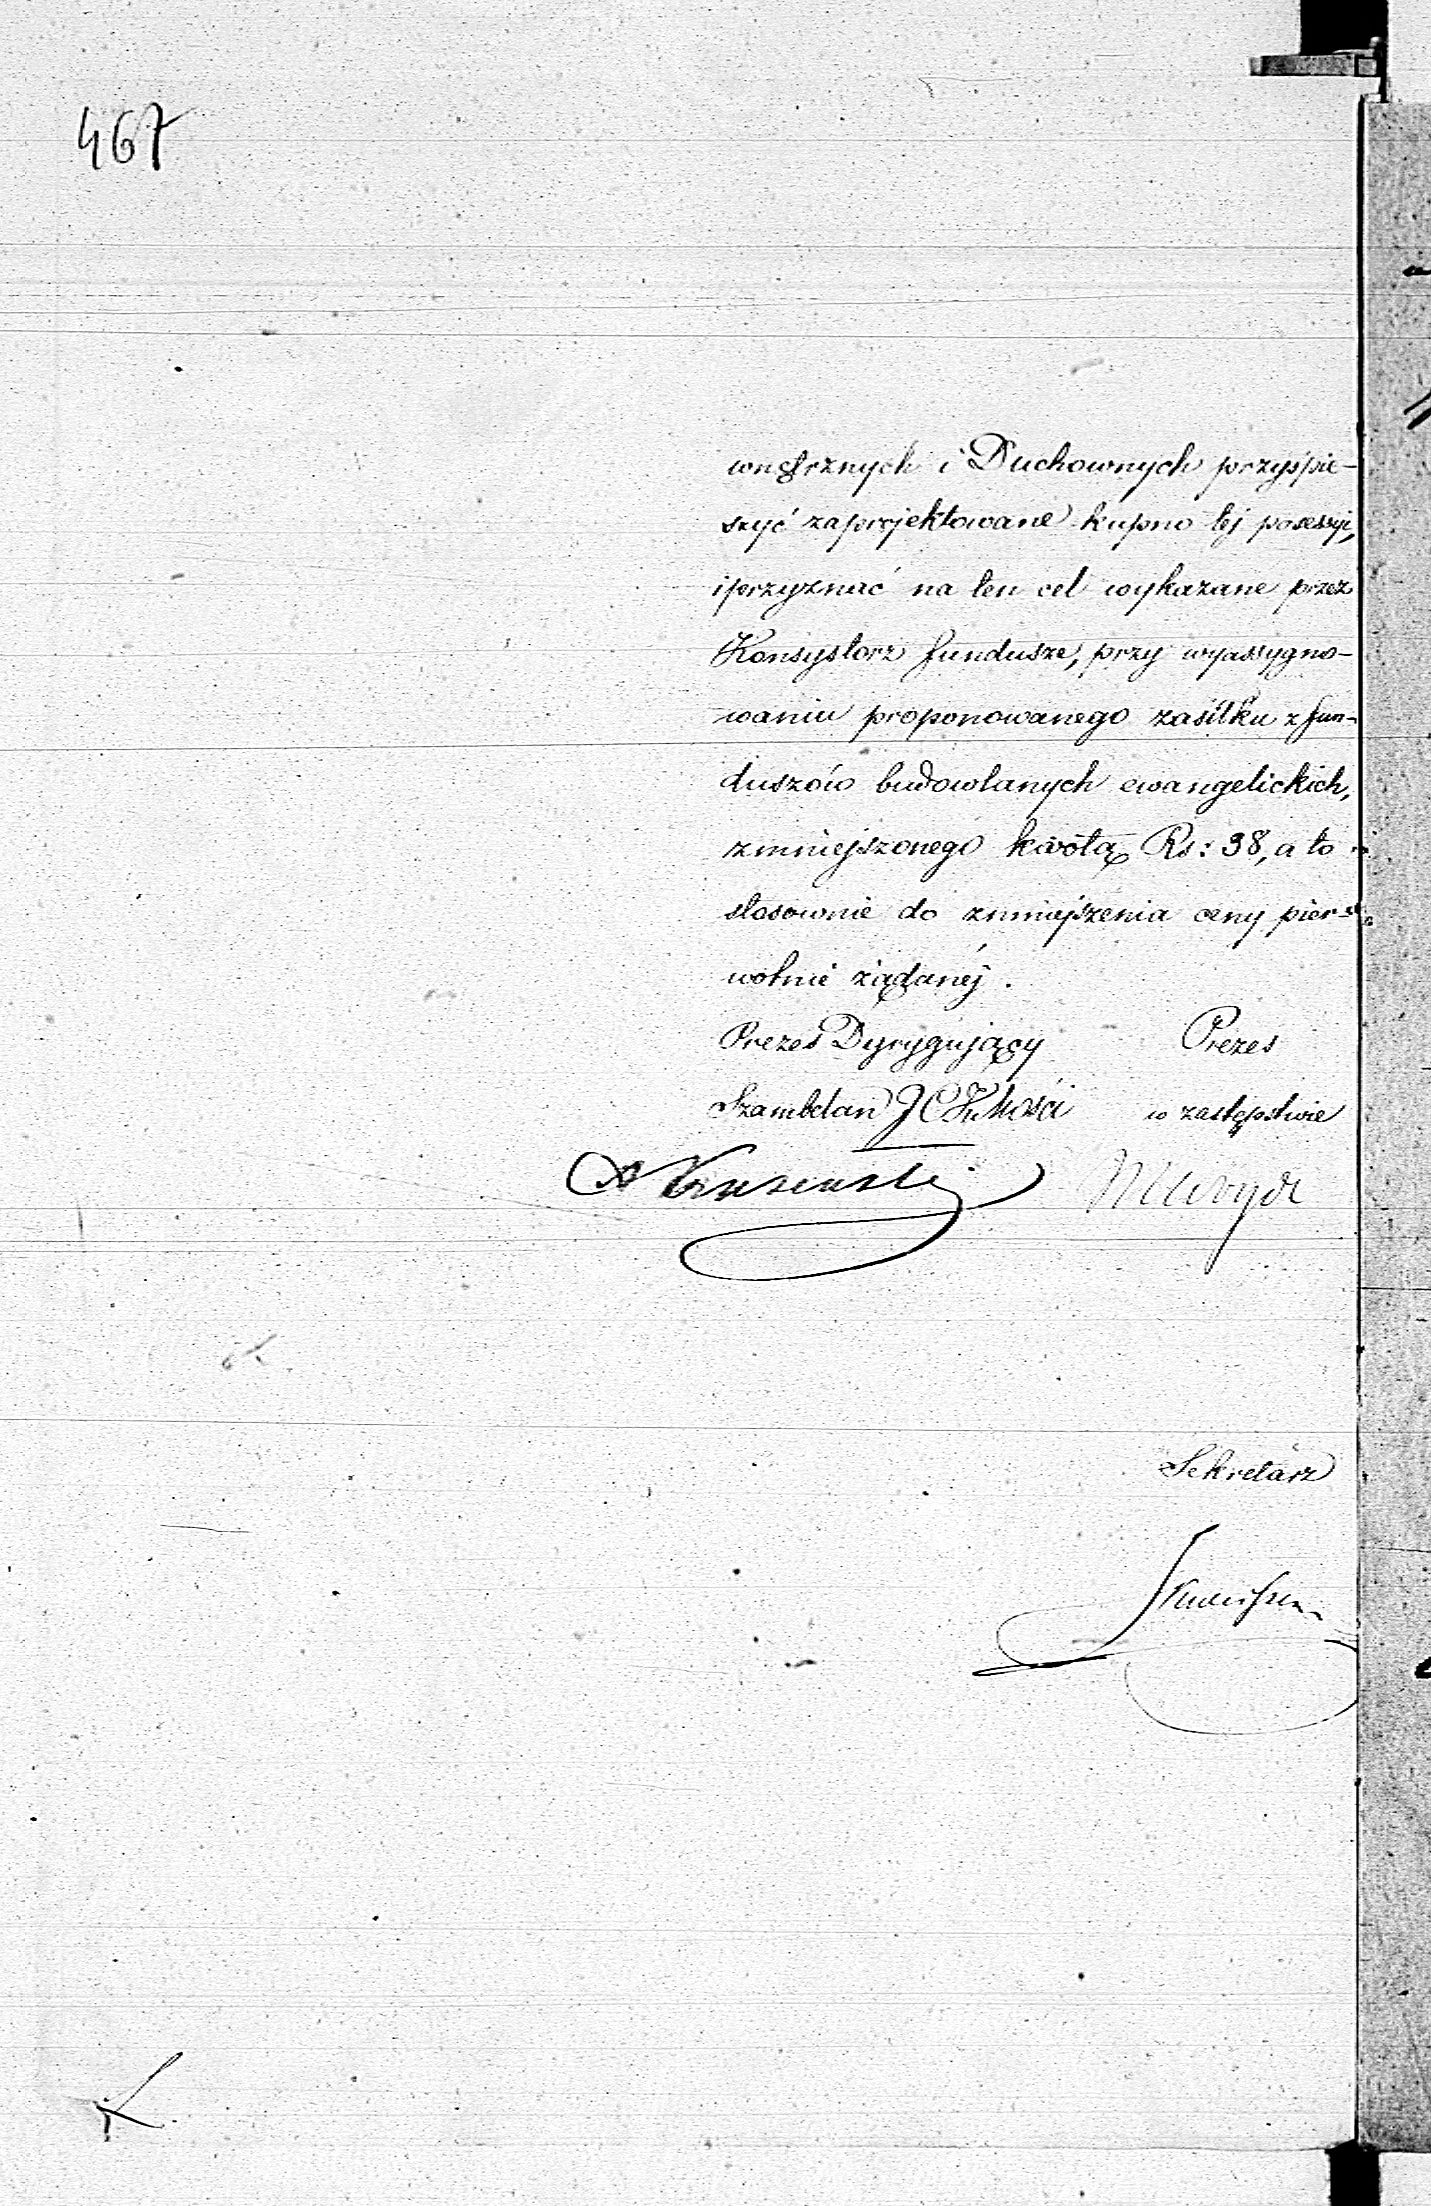 467
wnętrznych i Duchownych przyśpie-
szyć zaprojektowane kupno tej posessyi,
i przyznać na ten cel wykazane przez
Konsystorz fundusze, przy wyassygno-
waniu proponowanego zasiłku z fun-
duszów budowlanych ewangelickich,
zmniejszonego kwotą Rs: 38, a to
stosownie do zmniejszenia ceny pier-
wotnie żądanéj.
Prezes Dyrygujący Prezes
Szambelan J C K Mości w zastępstwie
Sekretarz